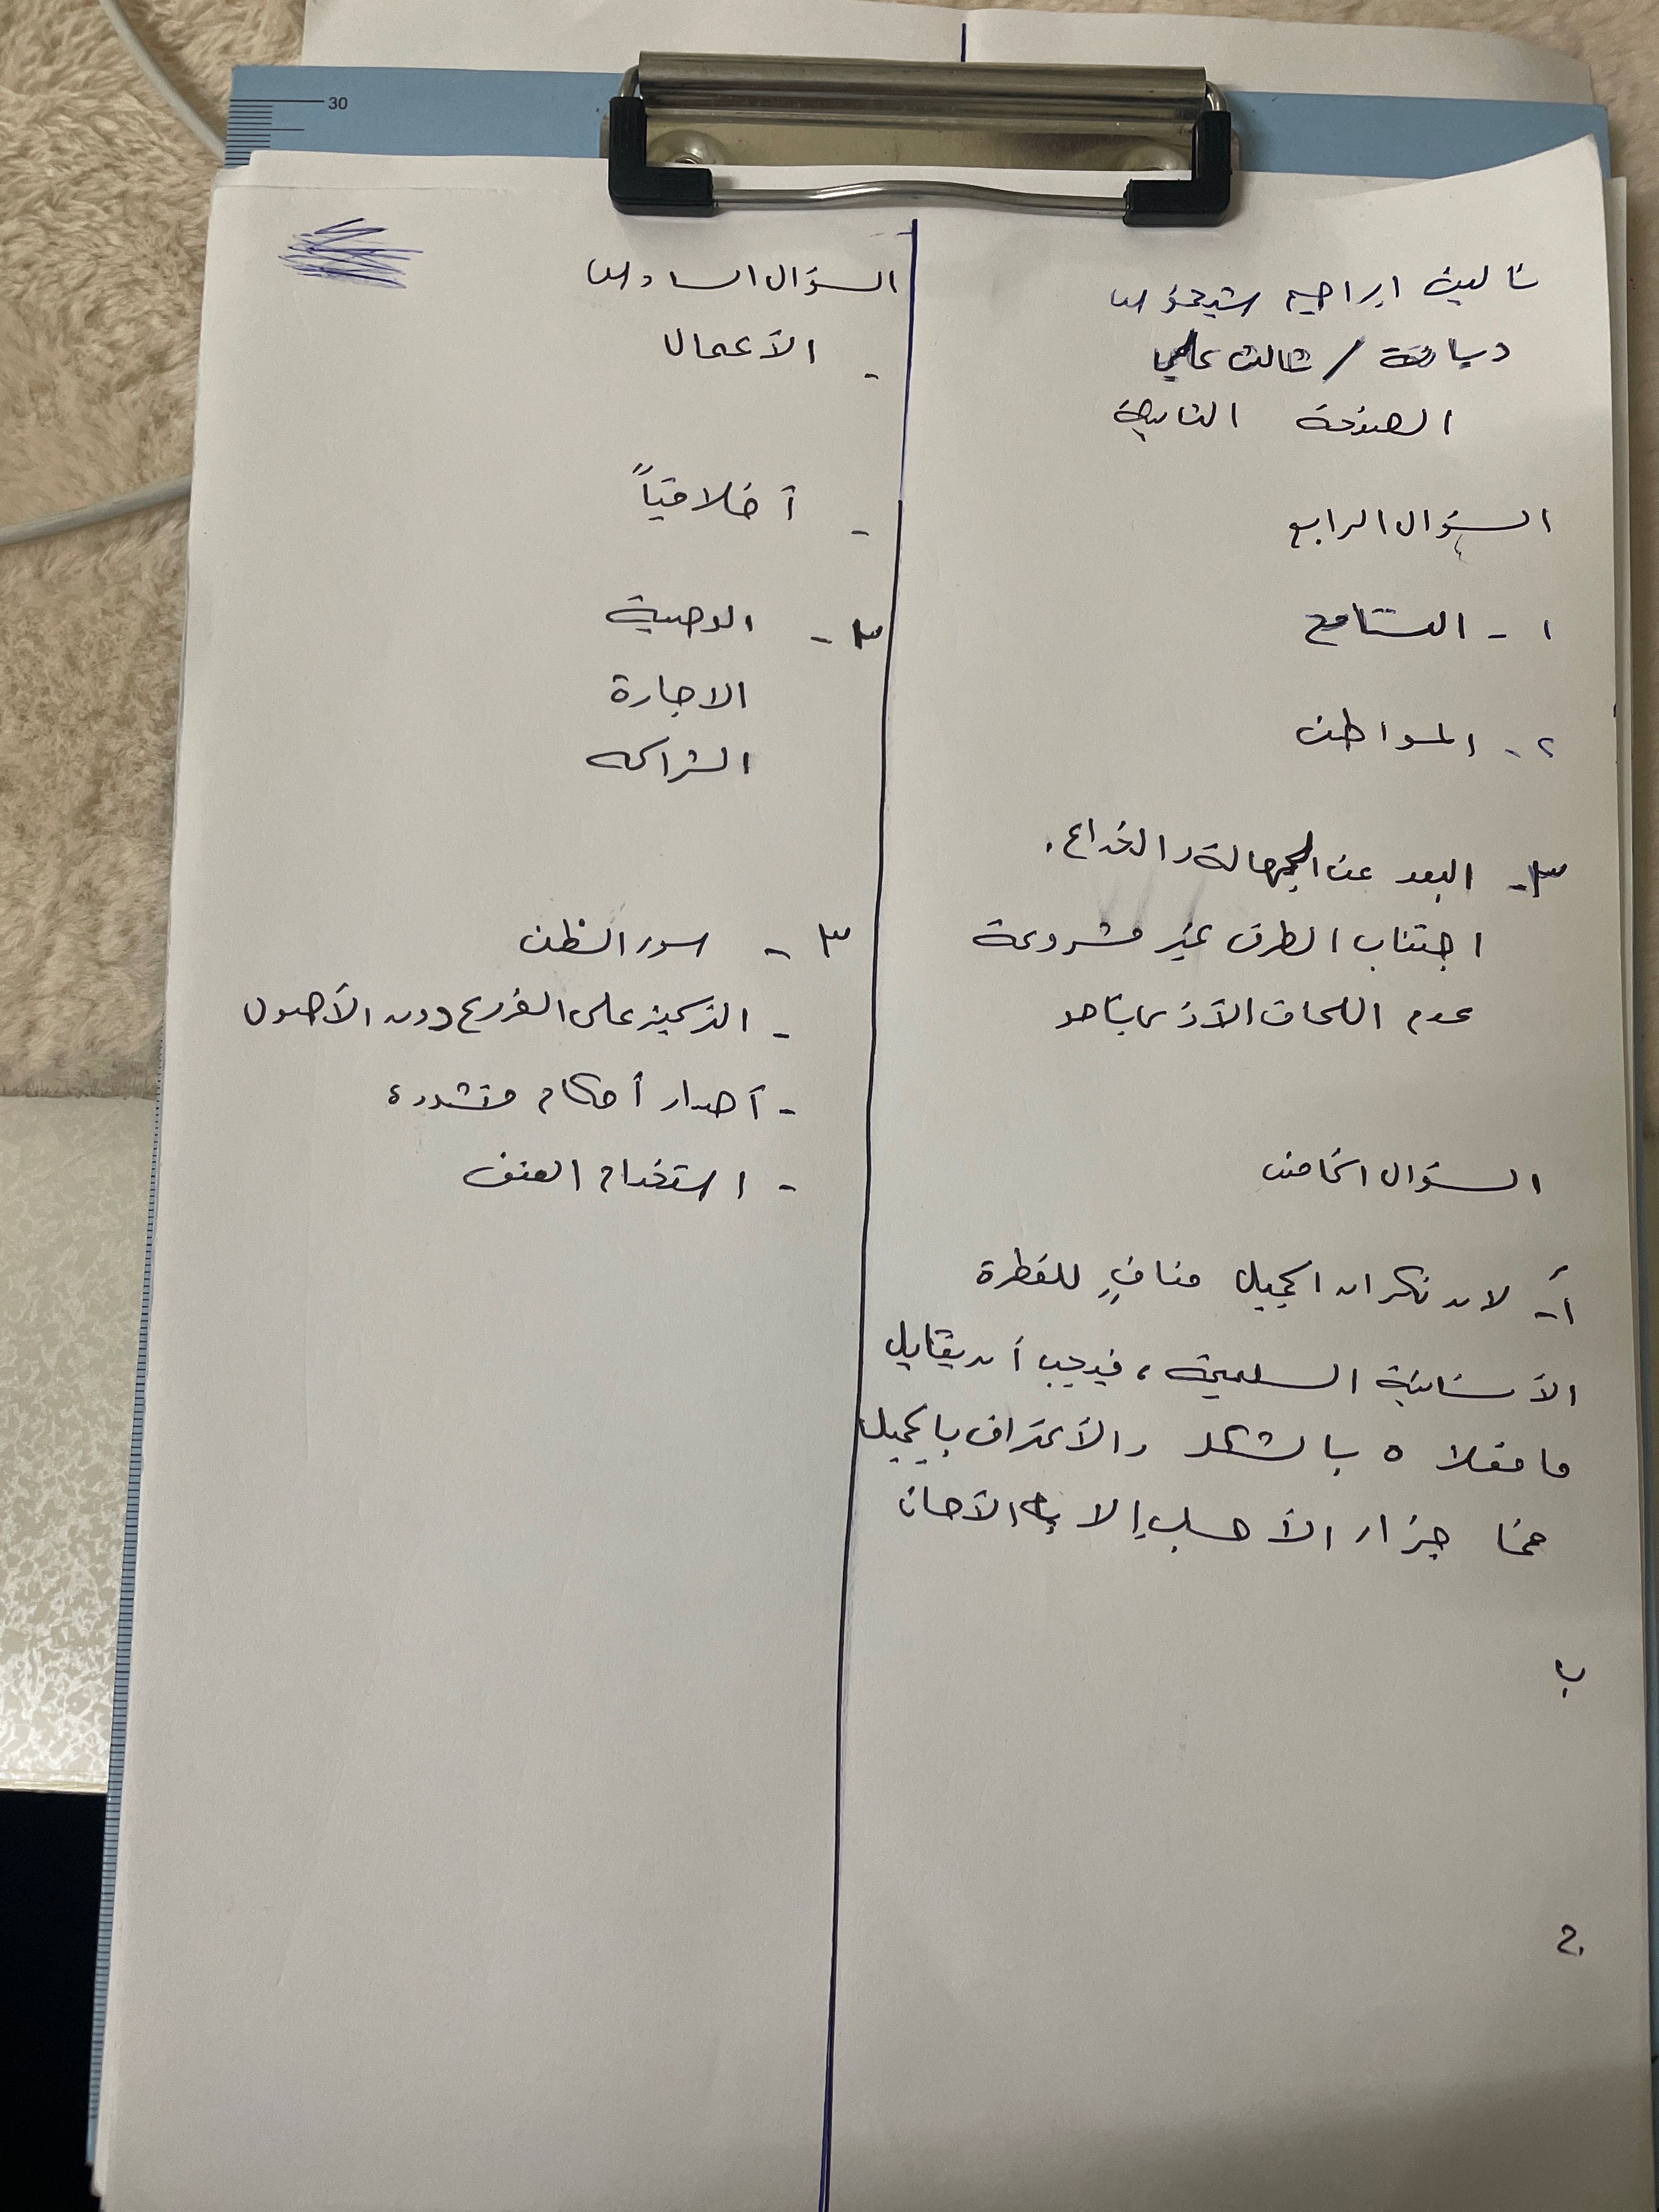 تالين ابراهيم شيخوس
ديانة / ثالث علمي
الصفحة الثانية
السؤال الرابع
١ - التسامح
٢ - المواطن
٣ - البعد عن الجهالة والخداع.
اجتناب الطرق غير مشروعة
عدم اللحاق الأذى بأحد
السؤال الخامس
أ - لان نكران الجميل منافٍ للفطرة
الأنسانية السليمة ، فيجب أن يقابل
ما فعلا ه بالشكر والأعتراف بالجميل
فما جزاء الأ إلا الأحسان
ب
السؤال السادس
- الأعمال
- أخلاقياً
٣ - الوصية
الاجارة
الشراكه
٣ - سوء الظن
- التركيز على الفروع دون الأصول
- أصدار أحكام متشددة
- استخدام العنف
30